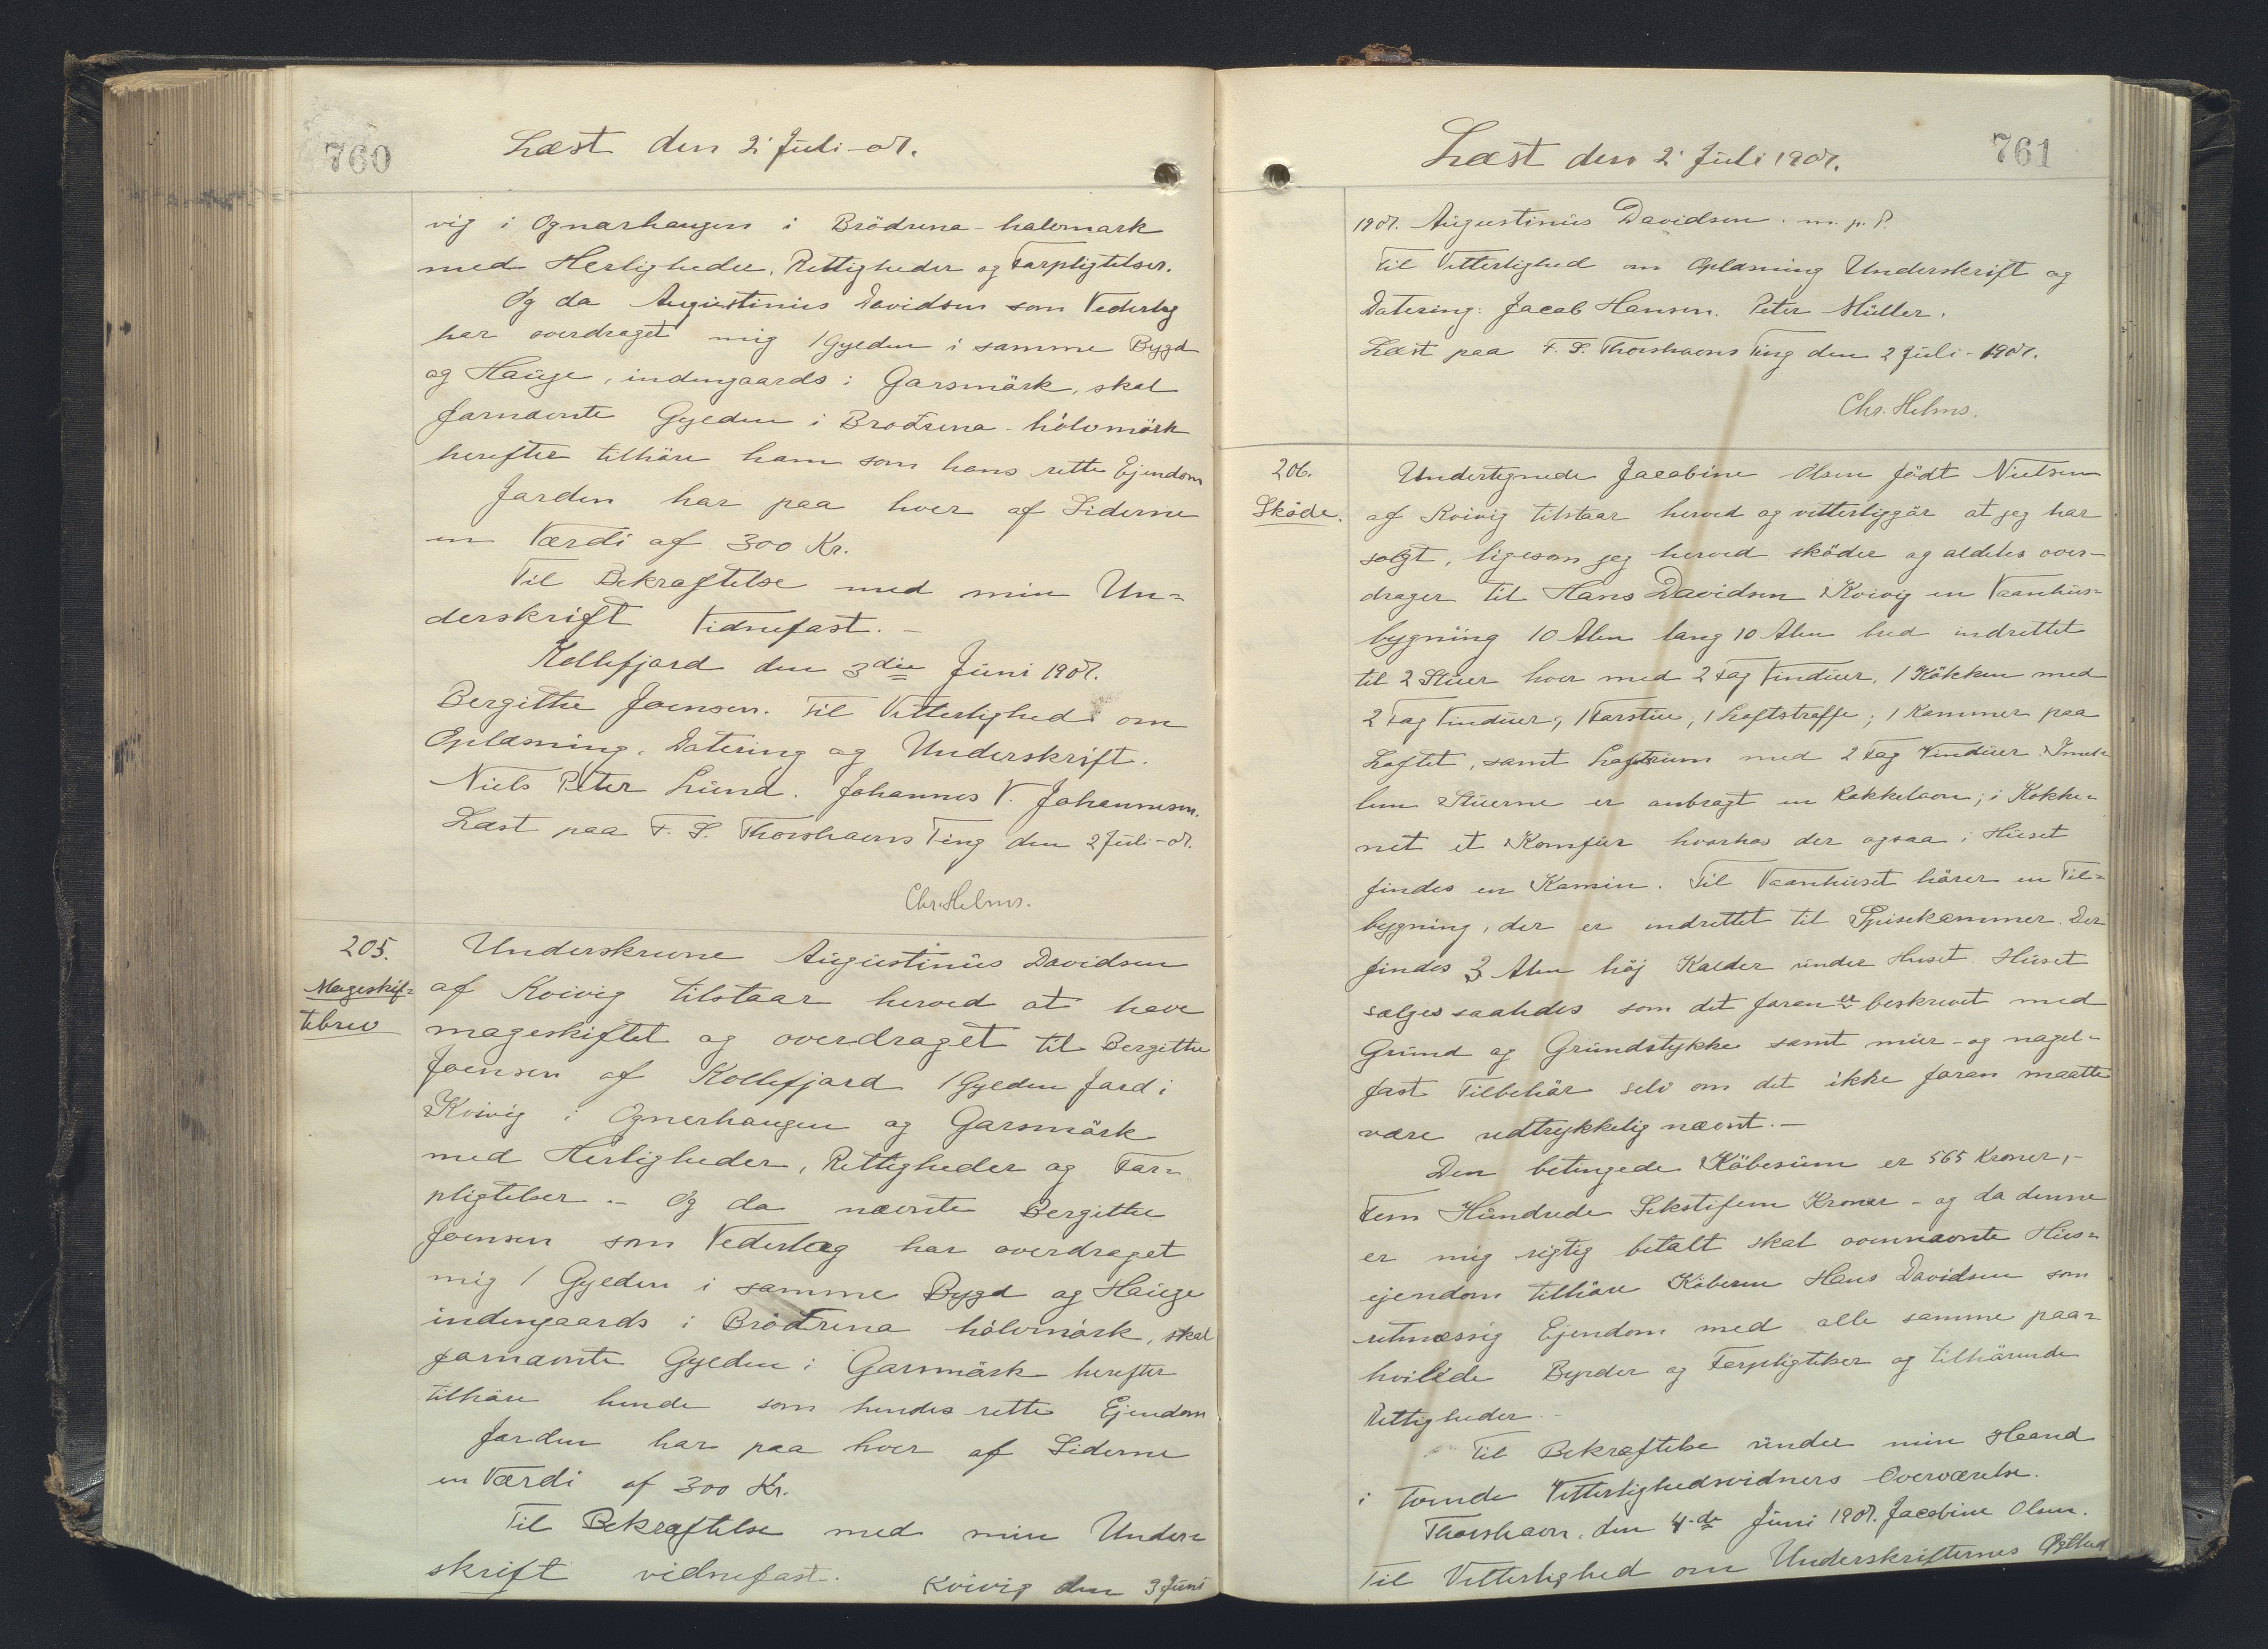 760
Læst den 2' Juli - 07.
vig i Ognarhaugen i Brödrena - halvmark
med Herligheder, Rettigheder og Forpligtelser.
Og da Augustinus Davidsen som Vederlag
har overdraget mig 1 Gylden i samme Bygd
og Hauge, indengaards i Garsmörk, skal
fornævnte Gylden i Brødrena - hólvmörk
herefter tilhöre ham som hans rette Ejendom
Jorden har paa hver af Siderne
en Værdi af 300 Kr.
Til Bekræftelse med min Un=
derskrift Vidnefast. -
Kollefjord den 3die Juni 1907.
Bergithe Joensen. Til Vitterlighed om
Oplæsning, Datering og Underskrift.
Niels Peter Lund. Johannes V. Johannesen.
Læst paa F. S. Thorshavns Ting den 2 Juli - 07.
Chr. Helms.
205.
Mageskif=
tebrev
Underskrevne Augustinus Davidsen
af Kvivig tilstaar herved at have
mageskiftet og overdraget til Bergithe
Joensen af Kollefjord 1 Gylden Jord i
Kvivig i Ognerhaugen og Garsmörk
med Herligheder, Rettigheder og For=
pligtelser. - Og da nævnte Bergithe
Joensen som Vederlag har overdraget
mig 1 Gylden i samme Bygd og Hauge
indengaards i Brödrena hólvmörk, skal
fornævnte Gylden i Garsmörk herefter
tilhöre hende som hendes rette Ejendom
Jorden har paa hver af Siderne
en Værdi af 300 Kr.
Til Bekræftelse med min Under=
skrift vidnefast. Kvivig den 3 Juni
761
Læst den 2' Juli 1907.
1907. Augustinus Davidsen. m. p. P.
Til Vitterlighed om Oplæsning Underskrift og
Datering: Jacob Hansen. Peter Müller.
Læst paa F. S. Thorshavns Ting den 2 Juli - 1907.
Chr. Helms.
206.
Sköde.
Undertegnede Jacobine Olsen födt Nielsen
af Kvivig tilstaar herved og vitterliggör at jeg har
solgt, ligesom jeg herved sköder og aldeles over=
drager til Hans Davidsen Kvivig en Vaanhus=
bygning 10 Alen lang 10 Alen bred indrettet
til 2 Stuer hver med 2 Fag Vinduer, 1 Kökken med
2 Fag Vinduer, 1 Forstue, 1 Loftstrappe, 1 Kammer paa
Loftet, samt Loftsrum med 2 Fag Vinduer. Imel=
lem Stuerne er anbragt en Kakkelovn; i Kökke=
net et Komfur hvorhos der ogsaa i Huset
findes en Kamin. Til Vaanhuset hörer en Til=
bygning, der er indrettet til Spisekammer. Der
findes 3 Alen höj Kælder under Huset. Huset
sælges saaledes som det foran er beskrevet med
Grund og Grundstykke samt mur- og nagel=
fast Tilbehör selv om det ikke foran maatte
være udtrykkelig nævnt. -
Den betingede Köbesum er 565 Kroner, -
Fem Hundrede Sekstifem Kroner - og da denne
er mig rigtig betalt skal ovennævnte Hus=
ejendom tilhöre Köberen Hans Davidsen som
retmæssig Ejendom med alle samme paa=
hvilede Byrder og Forpligtelser og tilhörende
Rettigheder. -
Til Bekræftelse under min Haand
i tvende Vitterlighedsvidners Overværelse.
Thorshavn, den 4-de Juni 1907. Jacobine Olsen.
Til Vitterlighed om Underskrifternes